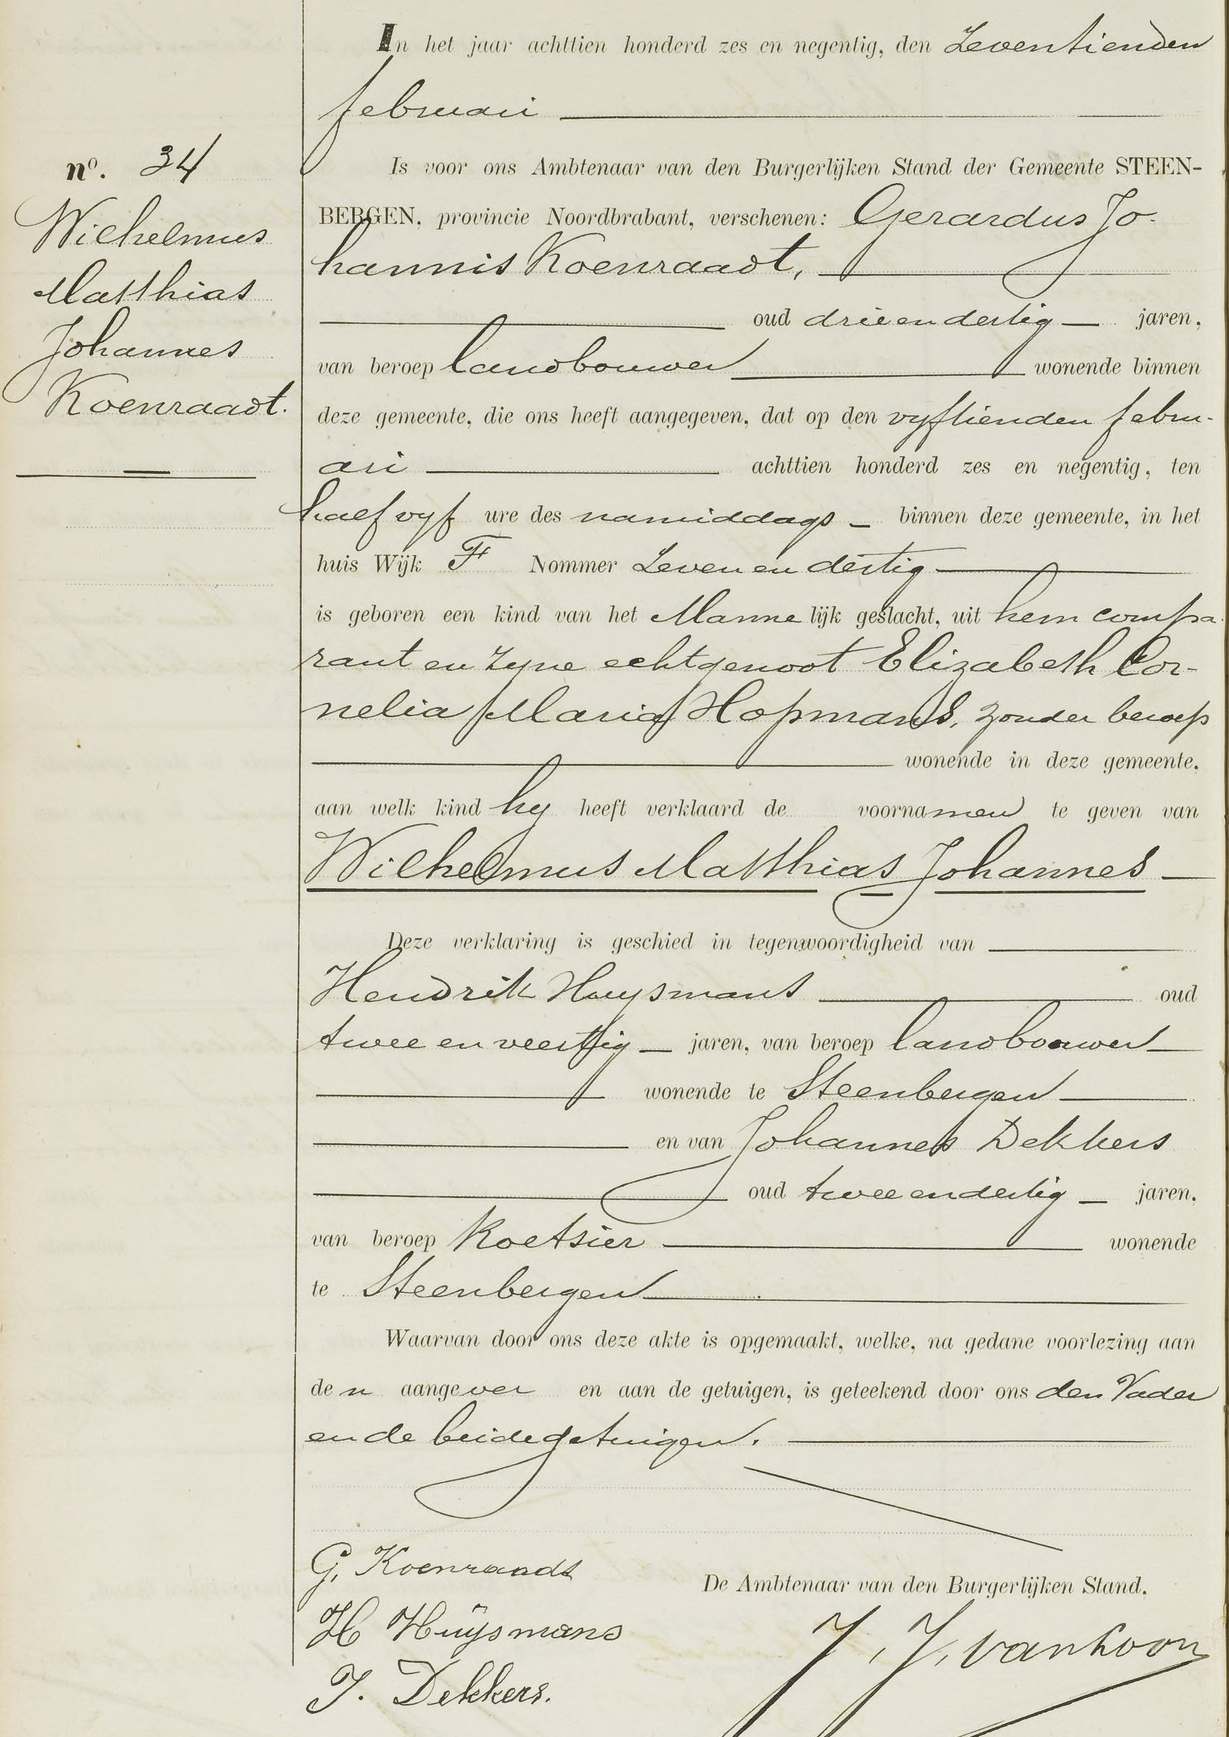 In het jaar achttien honderd zes en negentig, den Zeventienden
februari
no. 34
Wilhelmus
Matthias
Johannes
Koenraadt.
Is voor ons Ambtenaar van den Burgerlijken Stand der Gemeente STEEN-
BERGEN, provincie Noordbrabant, verschenen: Gerardus Jo-
hannis Koenraadt,
oud drieendertig jaren,
van beroep landbouwer wonende binnen
deze gemeente, die ons heeft aangegeven, dat op den vyftienden febru-
ari achttien honderd zes en negentig, ten
half vyf ure des namiddags binnen deze gemeente, in het
huis Wijk F Nommer Zevenendertig
is geboren een kind van het Mannelijk geslacht, uit hem compa-
rant en zyne echtgenoot Elizabeth Cor-
nelia Maria Hopmans, zonder beroep
wonende in deze gemeente,
aan welk kind hy heeft verklaard de voornamen te geven van
Wilhelmus Matthias Johannes
Deze verklaring is geschied in tegenwoordigheid van
Hendrik Huysmans oud
twee en veertig jaren, van beroep landbouwer
wonende te Steenbergen
en van Johannes Dekkers
oud tweeendertig jaren,
van beroep Koetsier wonende
te Steenbergen
Waarvan door ons deze akte is opgemaakt, welke, na gedane voorlezing aan
den aangever en aan de getuigen, is geteekend door ons den Vader
en de beide getuigen.
G. Koenraadt
De Ambtenaar van den Burgerlijken Stand,
H Huijsmans
J. J. van Loon
J. Dekkers.